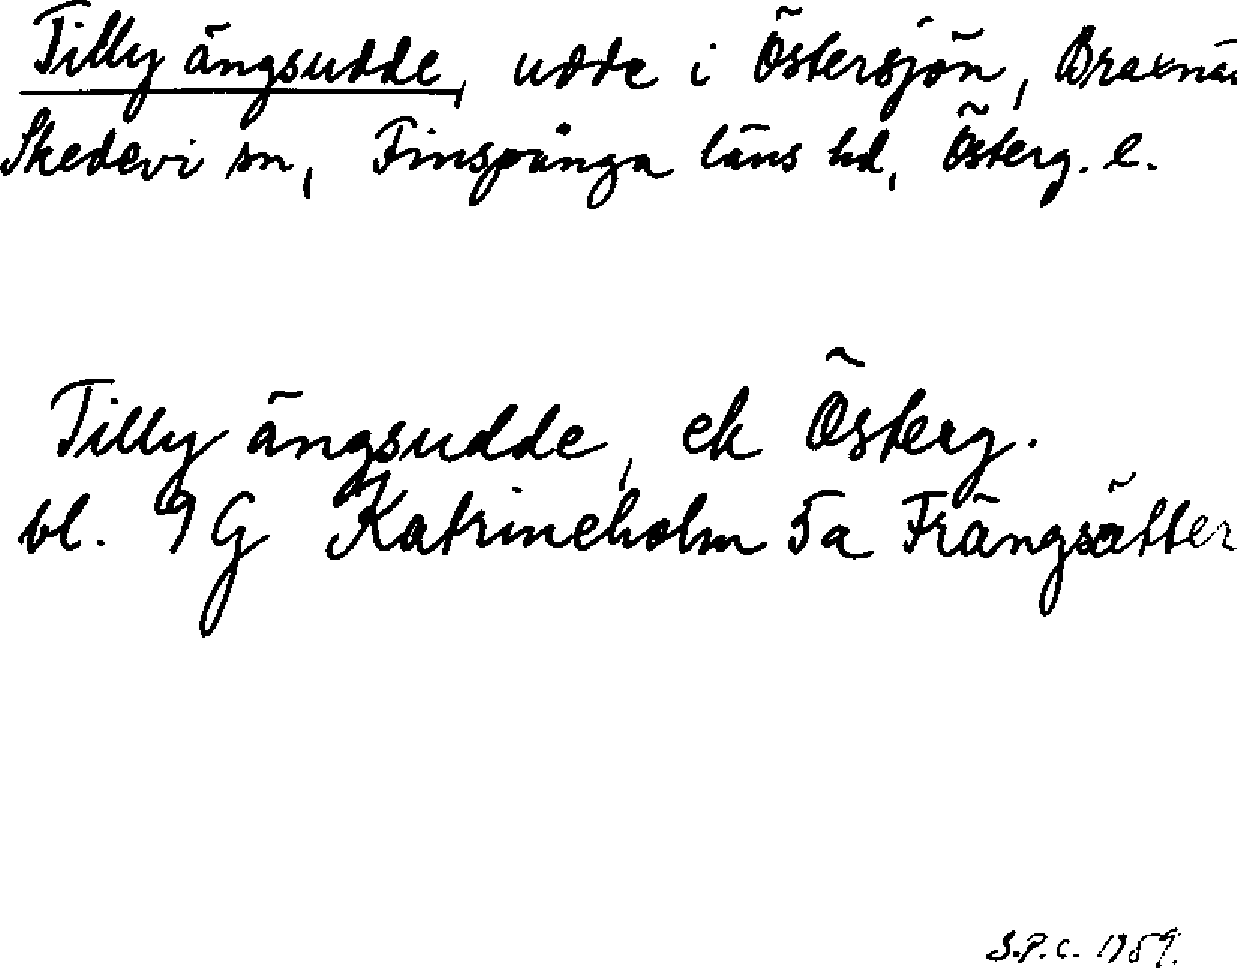 Tilly ängsudde, udde i Östersjön, Braxnä
Skedevi sn, Finspånga läns hd, Österg. l.
Tilly ängsudde, ek Österg.
bl. 9 G Katrineholm 5a Frängsätter
S.P.C. 1959.